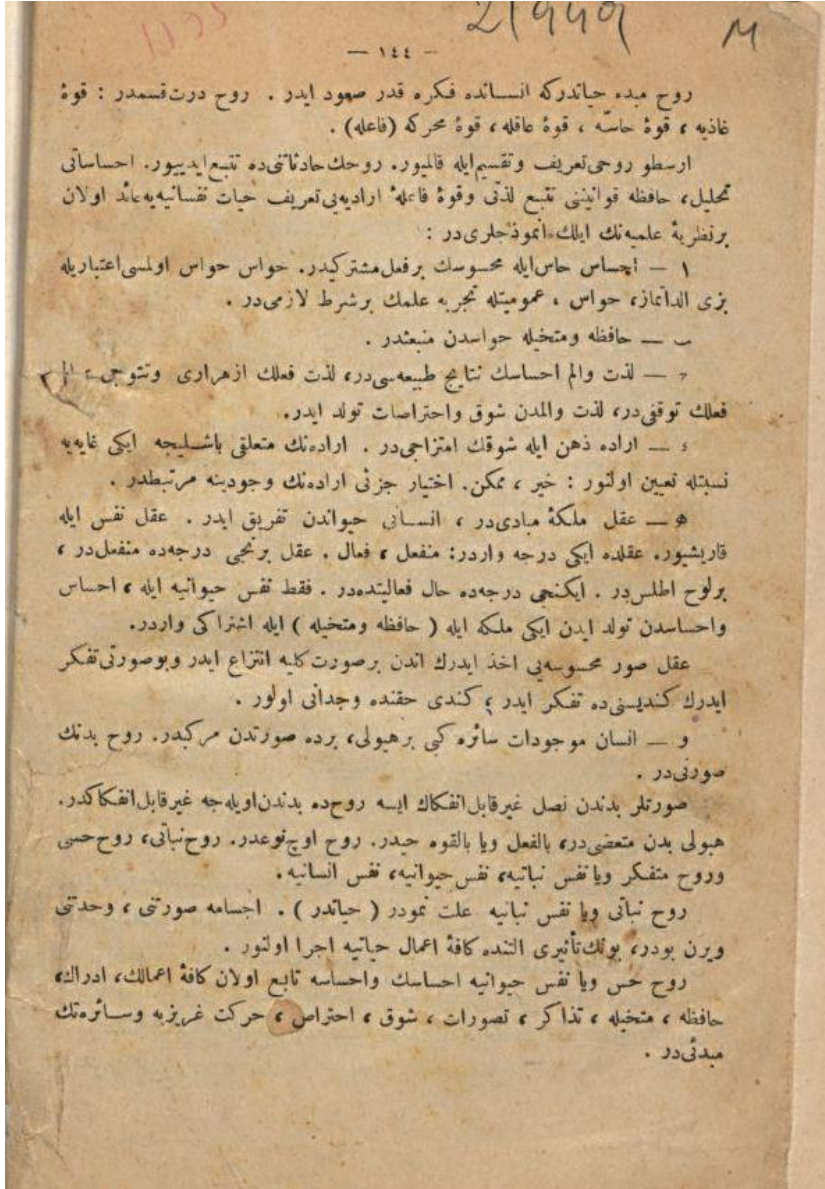 1155
21949
M
— ١٤٤ —
روح مبدء حیاتدركه انسانده فكره قدر صعود ایدر . روح درت قسمدر : قوهٔ
غاذیه ، قوهٔ حاسّه ، قوهٔ عاقله ، قوهٔ محركه (فاعله) .
ارسطو روحی تعریف وتقسیم ایله قالمیور. روحك حادثاتنی ده تتبع ایدییور. احساساتی
تحلیل، حافظه قوانیننی تتبع لذتی وقوهٔ فاعلهٔ ارادیه یی تعریف حیات نفسانیه یه عائد اولان
برنظریهٔ علمیه نك ایلك انموذجلری در :
١ — احساس حاس ایله محسوسك برفعل مشتركیدر. حواس حواس اولمسی اعتباریله
بزی الداتماز، حواس ، عمومیتله تجربه علمك برشرط لازمی در .
ب — حافظه ومتخیله حواسدن منبعثدر .
ج — لذت والم احساسك نتایج طبیعه سی در، لذت فعلك ازهراری وتتوجی ، الم
فعلك توقفی در، لذت والمدن شوق واحتراصات تولد ایدر.
د — اراده ذهن ایله شوقك امتزاجی در . اراده نك متعلقی باشلیجه ایكی غایه یه
نسبتله تعیین اولنور : خیر ، ممكن. اختیار جزئی اراده نك وجودینه مرتبطدر .
ه — عقل ملكهٔ مبادی در ، انسانی حیواندن تفریق ایدر . عقل نفس ایله
قاریشیور. عقلده ایكی درجه واردر: منفعل ، فعال . عقل برنجی درجه ده منفعل در ،
برلوح اطلس در . ایكنجی درجه ده حال فعالیتده در . فقط نفس حیوانیه ایله ، احساس
واحساسدن تولد ایدن ایكی ملكه ایله ( حافظه ومتخیله ) ایله اشتراكی واردر.
عقل صور محسوسه یی اخذ ایدرك اندن برصورت كلیه انتزاع ایدر وبوصورتی تفكر
ایدرك كندیسنی ده تفكر ایدر ؛ كندی حقنده وجدانی اولور .
و — انسان موجودات سائره كبی برهیولی، برده صورتدن مركبدر. روح بدنك
صورتی در .
صورتلر بدندن نصل غیرقابل انفكاك ایسه روح ده بدندن اویله جه غیرقابل انفكاكدر.
هیولی بدن متعضی در، بالفعل ویا بالقوه حیدر. روح اوچ نوعدر. روح نباتی، روح حسی
وروح متفكر ویا نفس نباتیه، نفس حیوانیه، نفس انسانیه.
روح نباتی ویا نفس نباتیه علت نمودر ( حیاتدر ) . اجسامه صورتنی ، وحدتنی
ویرن بودر، بونك تأثیری التنده كافهٔ اعمال حیاتیه اجرا اولنور .
روح حس ویا نفس حیوانیه احساسك واحساسه تابع اولان كافهٔ اعمالك، ادراك،
حافظه ، متخیله ، تذاكر ، تصورات ، شوق ، احتراص ، حركت غریزیه وسائره نك
مبدئی در .